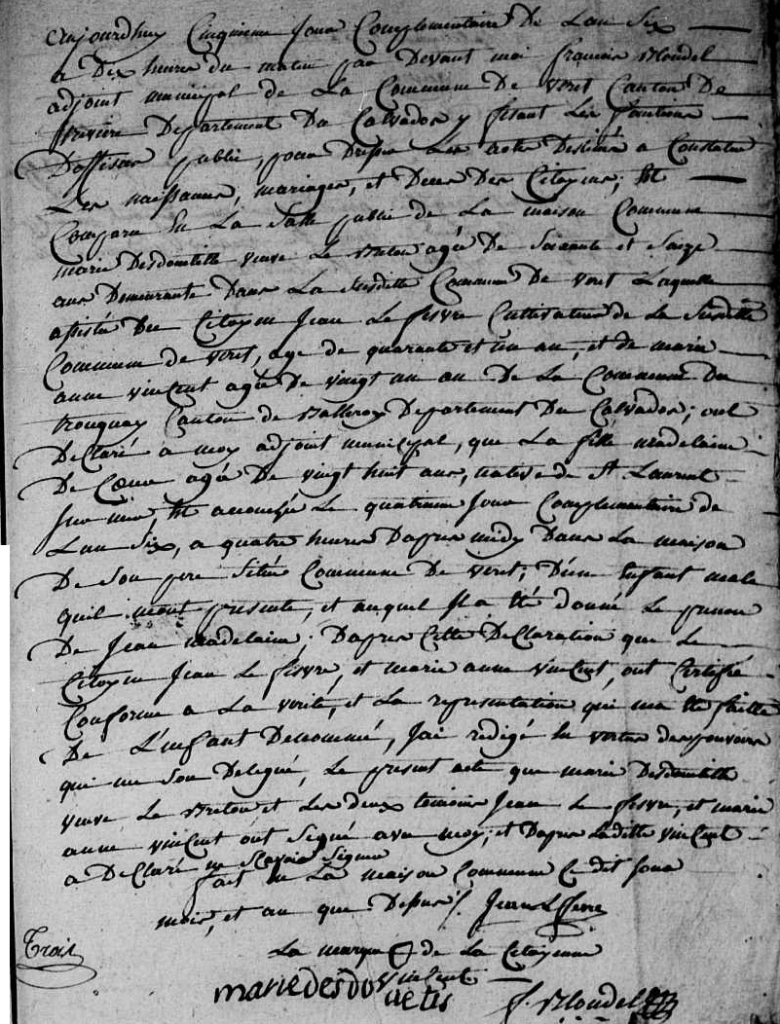 aujourdhuy Cinquieme Jour Complementaire De Lan Six
a Dix heures du matin par Devant moi francois Blondel
adjoint municipal de La Commune de veret Canton De
treviere Departement Du Calvados y fesant Les fontions
Dofficier public, pour Dresser Les actes Destinés a Constater
Les naissances, mariages, et Deces Des Citoyens; Et
Comparu En La Salle public de La maison Commune
marie Desdouitille veuve Le Breton agée De Soixante et Saize
ans Demeurante Dans La Susditte Commune De veret Laquelle
assisté Du Citoyen Jean Le fevre Cultivateur de La Susditte
Commune de veret, age de quarante et un an, et de marie
anne vincent agée De vingt un an De La Commune Du
tronquay Canton de Balleroy Departement Du Calvados; ont
Declaré a moy adjoint municipal, que La fille madelaine
De Coeur agée De vingt huit ans, native de St Laurent
Sur mer, Et accouchée Le quatrieme Jour Complementaire de
Lan Six, a quatre heures Dapres midy Dans La maison
De Son pere Sitüé Commune De veret; D'un Enfant male
quil mont presenté, et auquel Il a Eté donné Le prenom
De Jean madelaine; Dapres Cette Declaration que Le
Citoyen Jean Le fevre, et marie anne vincent, ont Certifié
Conforme a La verité, et La representation qui ma Eté faitte
De L'enfant Denommé, Jai redigé En vertu des pouvoirs
qui me Son Delegué, Le present acte que marie Desdouitille
veuve Le Breton et Les deux temoins Jean Le fevre, et marie
anne vincent ont Signé avec moy; et Dapres Laditte vincent
a Declaré ne Scavoir Signer
fait En La maison Commune Ce dit Jour
mois, et an que Dessus ∫. Jean Lefevre
Trois
La marque de La Citoyenne
vincent
marie desdouetis
f. Blondel